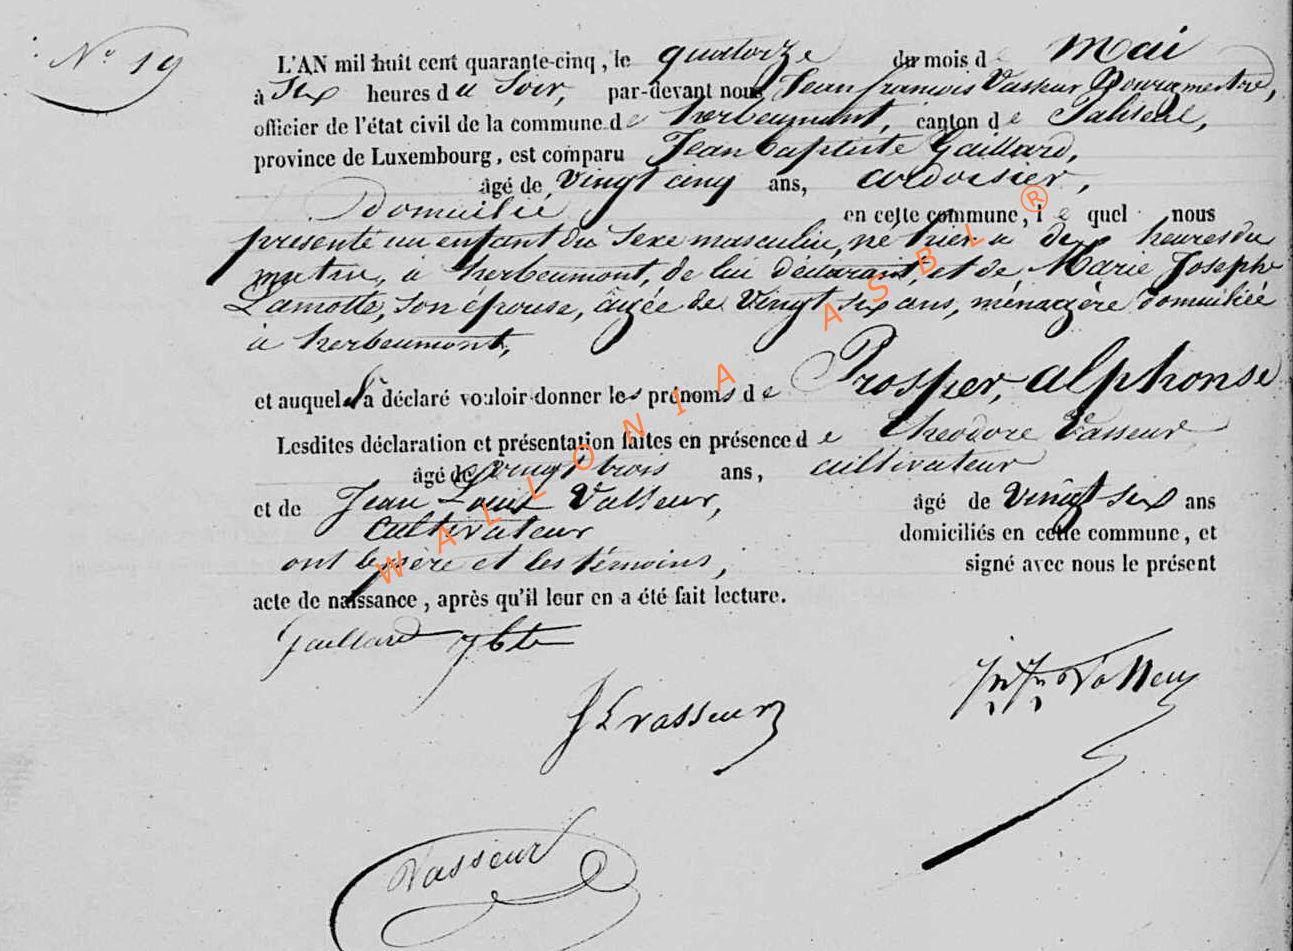 N° 19
L'AN mil huit cent quarante-cinq, le quatorze du mois de Mai
à Six heures du Soir, par-devant nous Jean françois Vasseur Bourgmestre,
officier de l'état civil de la commune de herbeumont, canton de Paliseul,
province de Luxembourg, est comparu Jean Baptiste Gaillard,
âgé de Vingt cinq ans, ardoisier,
Domicilié en cette commune, lequel nous
présente un enfant du Sexe masculin, né hier à dix heures du
matin, à herbeumont, de lui déclarant, et de Marie Josephe
Lamotte, son épouse, âgée de Vingt six ans, ménagère domiciliée
à herbeumont,
et auquel il a déclaré vouloir donner les prénoms de Prosper, alphonse
Lesdites déclaration et présentation faites en présence de theodore Vasseur
âgé de vingt trois ans, cultivateur
et de Jean Louis Vasseur, âgé de Vingt six ans
Cultivateur domiciliés en cette commune, et
ont le père et les témoins, signé avec nous le présent
acte de naissance, après qu'il leur en a été fait lecture.
Gaillard jbte
JLvasseur
Vasseur
Vasseur
WALLONIA ASBL ®